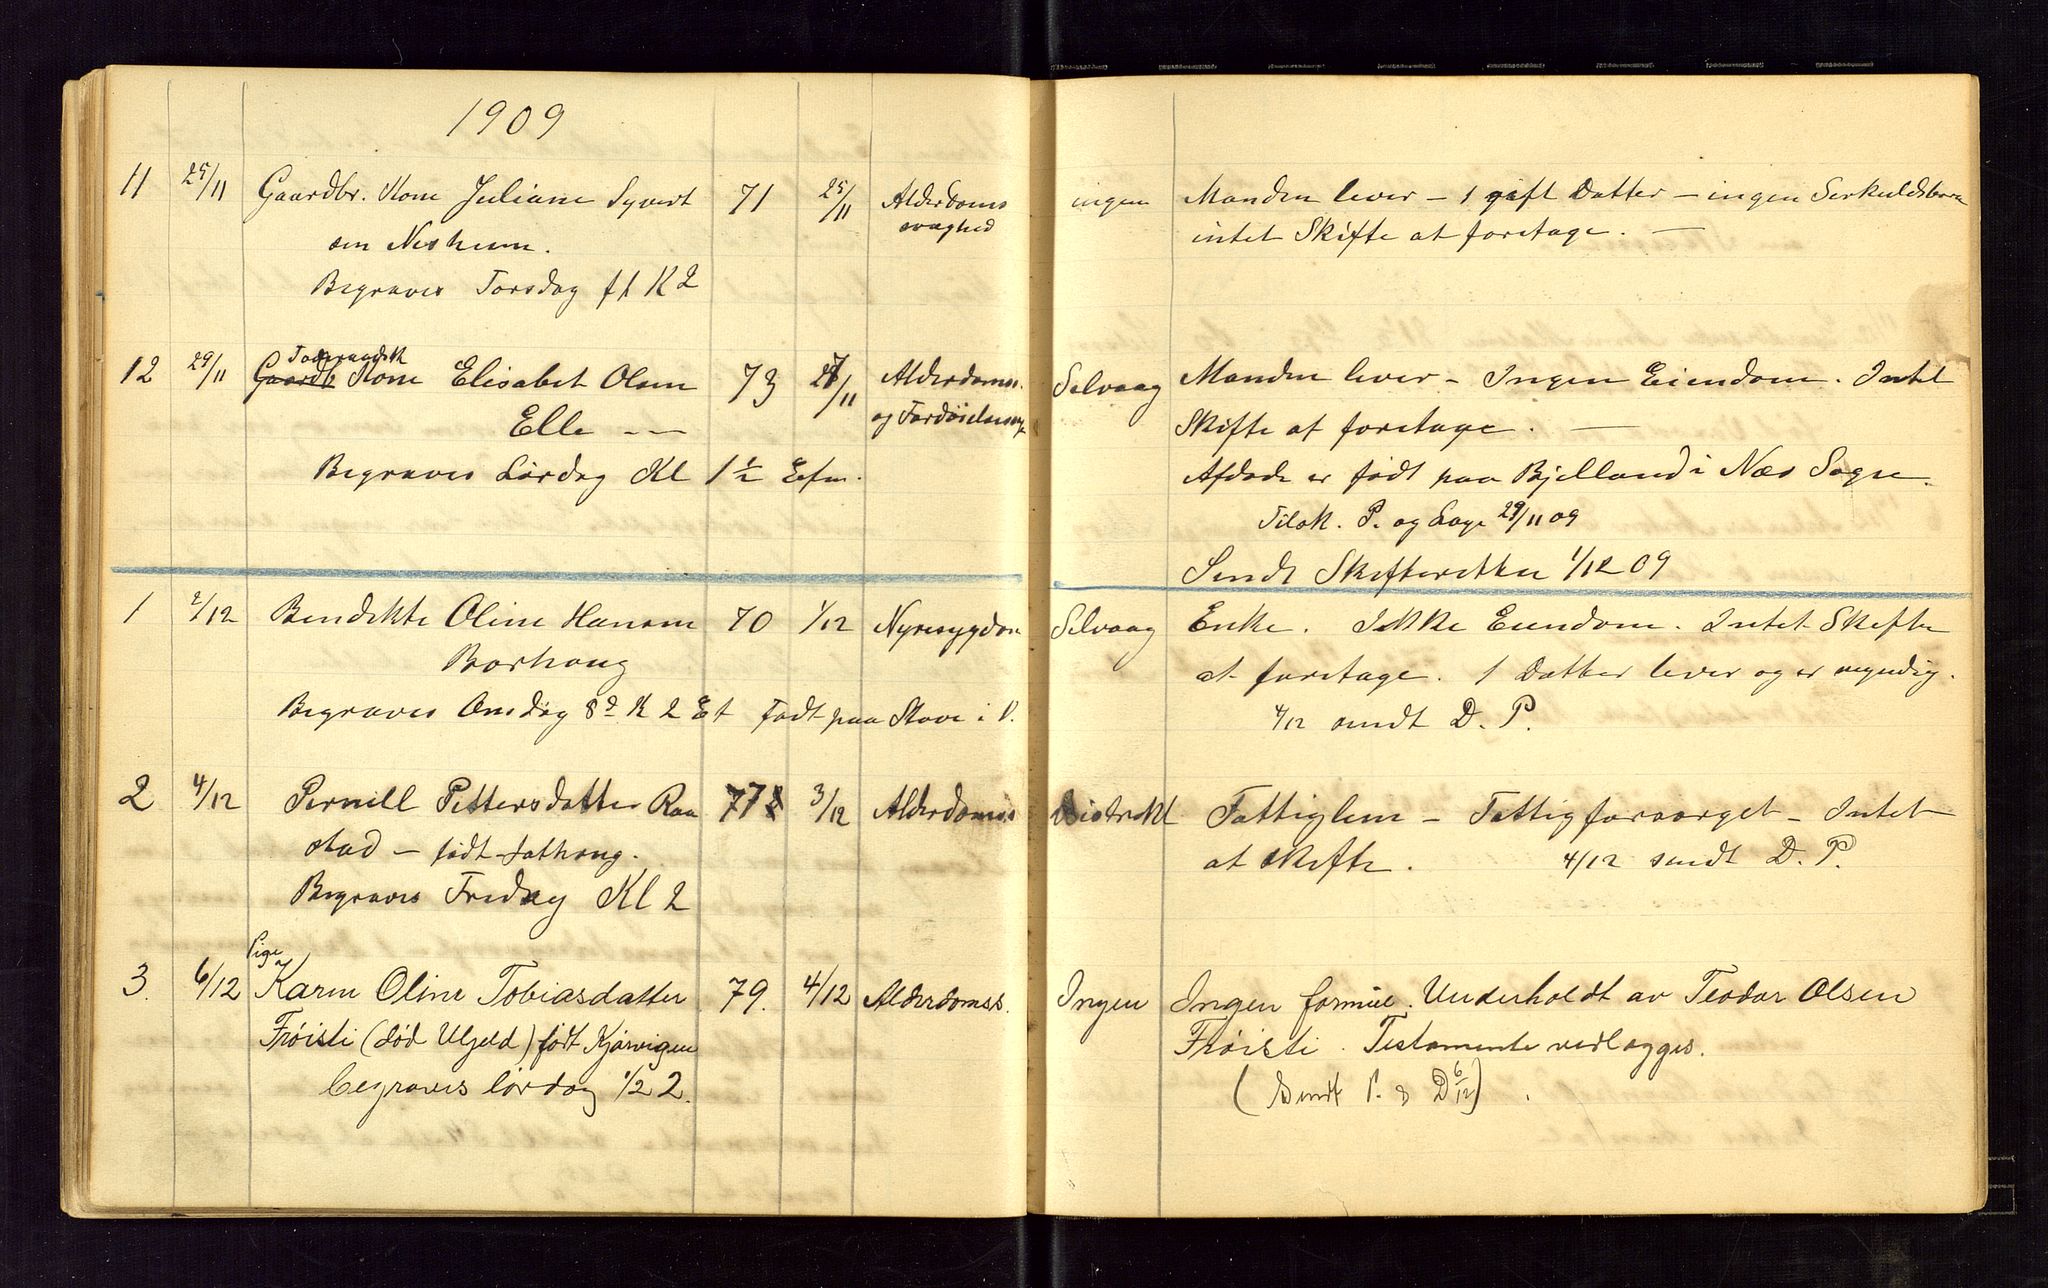 1909
11 25/11 Gaardbr. Kone Juliane Syvert 71 25/11 Alderdoms ingen Manden lever - 1 gift Datter - ingen
sen Nesheim. svaghed intet Skifte at foretage. -
Begraves Torsdag f1 K 2
12 29/11 Gaardb Kone Elisabet Olsen 73 /11 Alderdomss. Selvaag Manden lever - Ingen Eiendom. Intet
Elle -- og Skifte at foretage. -
Begraves Lørdag Kl 1 ½ Efm. Afdøde er født paa Bjelland i Næs Sogn.
Tilsk. P. og 29/11 09
Sendt Skifteretten 1/12 09
1 2/12 Bendikte Oline Hansen 70 1/12 Nyresygdom Selvaag Enke. Ikke Eiendom. Intet Skifte
Borhaug at foretage. 1 Datter lever og er myndig.
Begraves Onsdag 8d K 2 Et født paa Stave i V. 4/12 sendt D. P.
2 4/12 Pernill Pettersdatter Raa 77 3/12 Alderdomss Distrikt Fattiglem - Fattigforsorget - Intet
stad - født Hathaug. at skifte. 4/12 sendt D. P.
Begraves Fredag Kl 2
Pige
3. 6/12 Karen Oline Tobiasdatter 79. 4/12 Alderdomss. Ingen Ingen formue. Underholdt av Teodor Olsen
Frøisti (død Ulgjeld) født Kjørvigen Frøisti. Testamente vedlægges.
begraves lørdag 1/2 2. (Sendt P. & D 6/12).